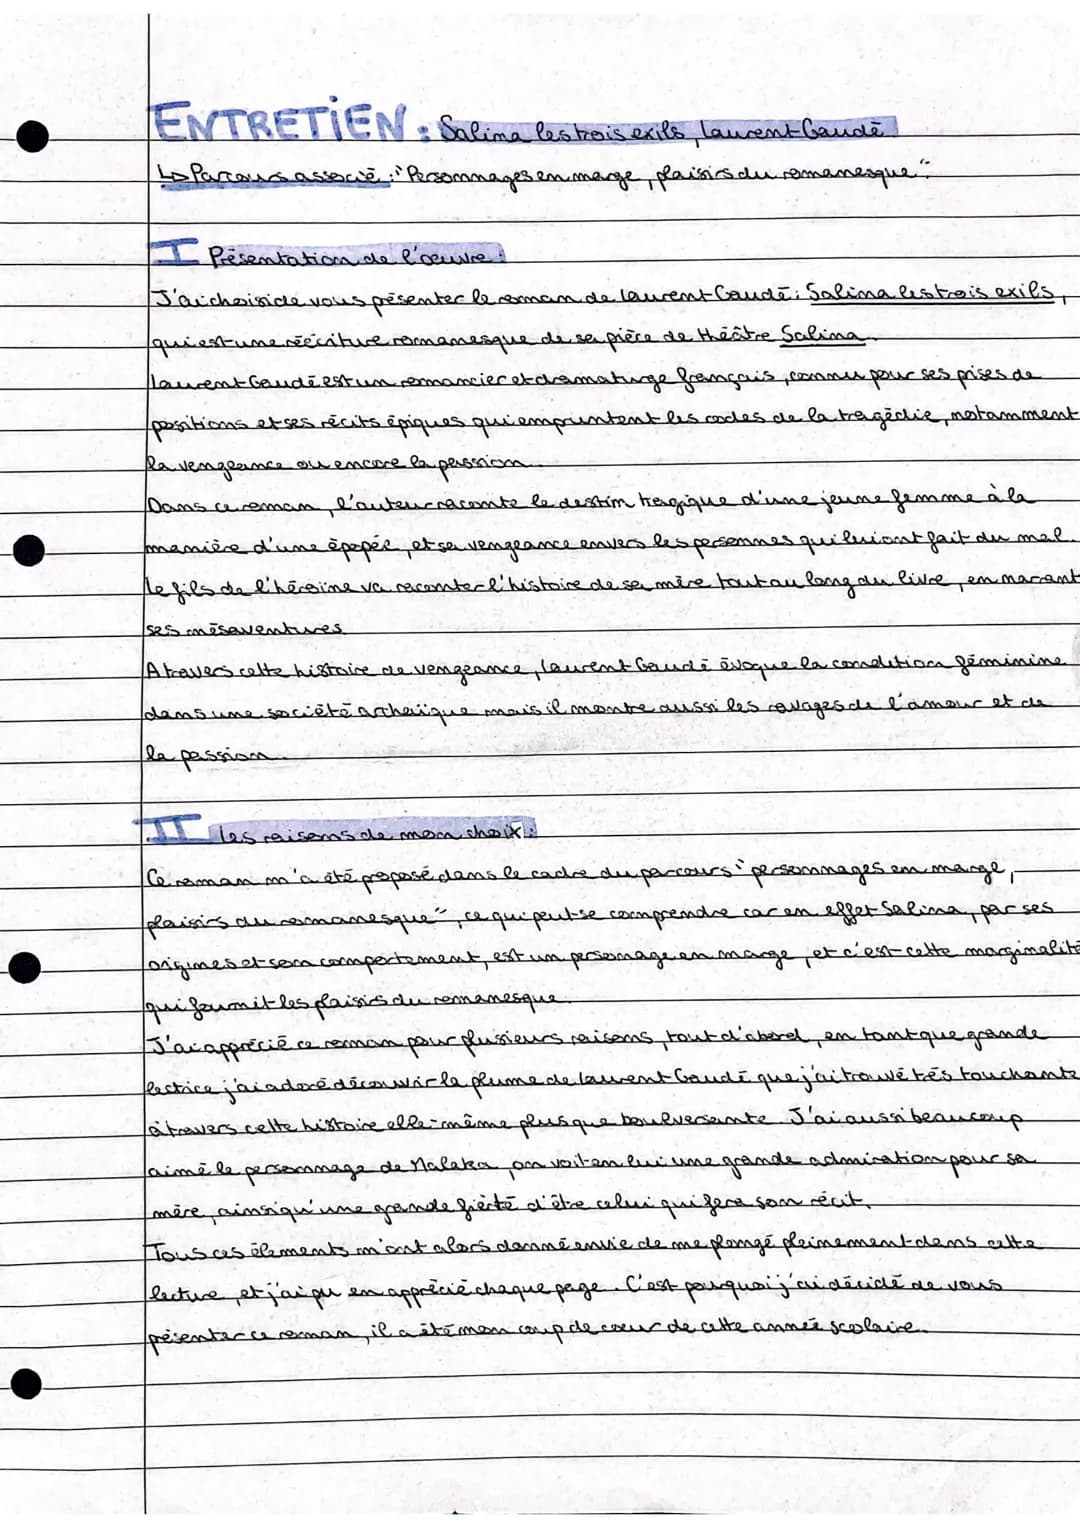 ENTRETIEN : Salina les trois exils, Laurent Gaudé
↳ Parcours associé : "Personnages en marge, plaisirs du romanesque".
I Présentation de l'œuvre :
J'ai choisi de vous présenter le roman de Laurent Gaudé : Salina les trois exils,
qui est une réécriture romanesque de sa pièce de théâtre Salina.
Laurent Gaudé est un romancier et dramaturge français, connu pour ses prises de
positions et ses récits épiques qui empruntent les codes de la tragédie, notamment
la vengeance ou encore la passion.
Dans ce roman, l'auteur raconte le destin tragique d'une jeune femme à la
manière d'une épopée, et sa vengeance envers les personnes qui lui ont fait du mal.
Le fils de l'héroïne va raconter l'histoire de sa mère tout au long du livre, en narrant
ses mésaventures.
A travers cette histoire de vengeance, Laurent Gaudé évoque la condition féminine
dans une société archaïque mais il montre aussi les ravages de l'amour et de
la passion.
II Les raisons de mon choix :
Ce roman m'a été proposé dans le cadre du parcours "personnages en marge,
plaisirs du romanesque", ce qui peut se comprendre car en effet Salina, par ses
origines et son comportement, est un personage en marge, et c'est cette marginalité
qui fournit les plaisirs du romanesque.
J'ai apprécié ce roman pour plusieurs raisons, tout d'abord, en tant que grande
lectrice j'ai adoré découvrir la plume de Laurent Gaudé que j'ai trouvé très touchante
à travers cette histoire elle-même plus que boulversante. J'ai aussi beaucoup
aimé le personnage de Malaka, on voit en lui une grande admiration pour sa
mère, ainsi qu'une grande fierté d'être celui qui fera son récit.
Tous ces élements m'ont alors donné envie de me plongé pleinement dans cette
lecture, et j'ai pu en apprécié chaque page. C'est pourquoi j'ai décidé de vous
présenter ce roman, il a été mon coup de coeur de cette année scolaire.